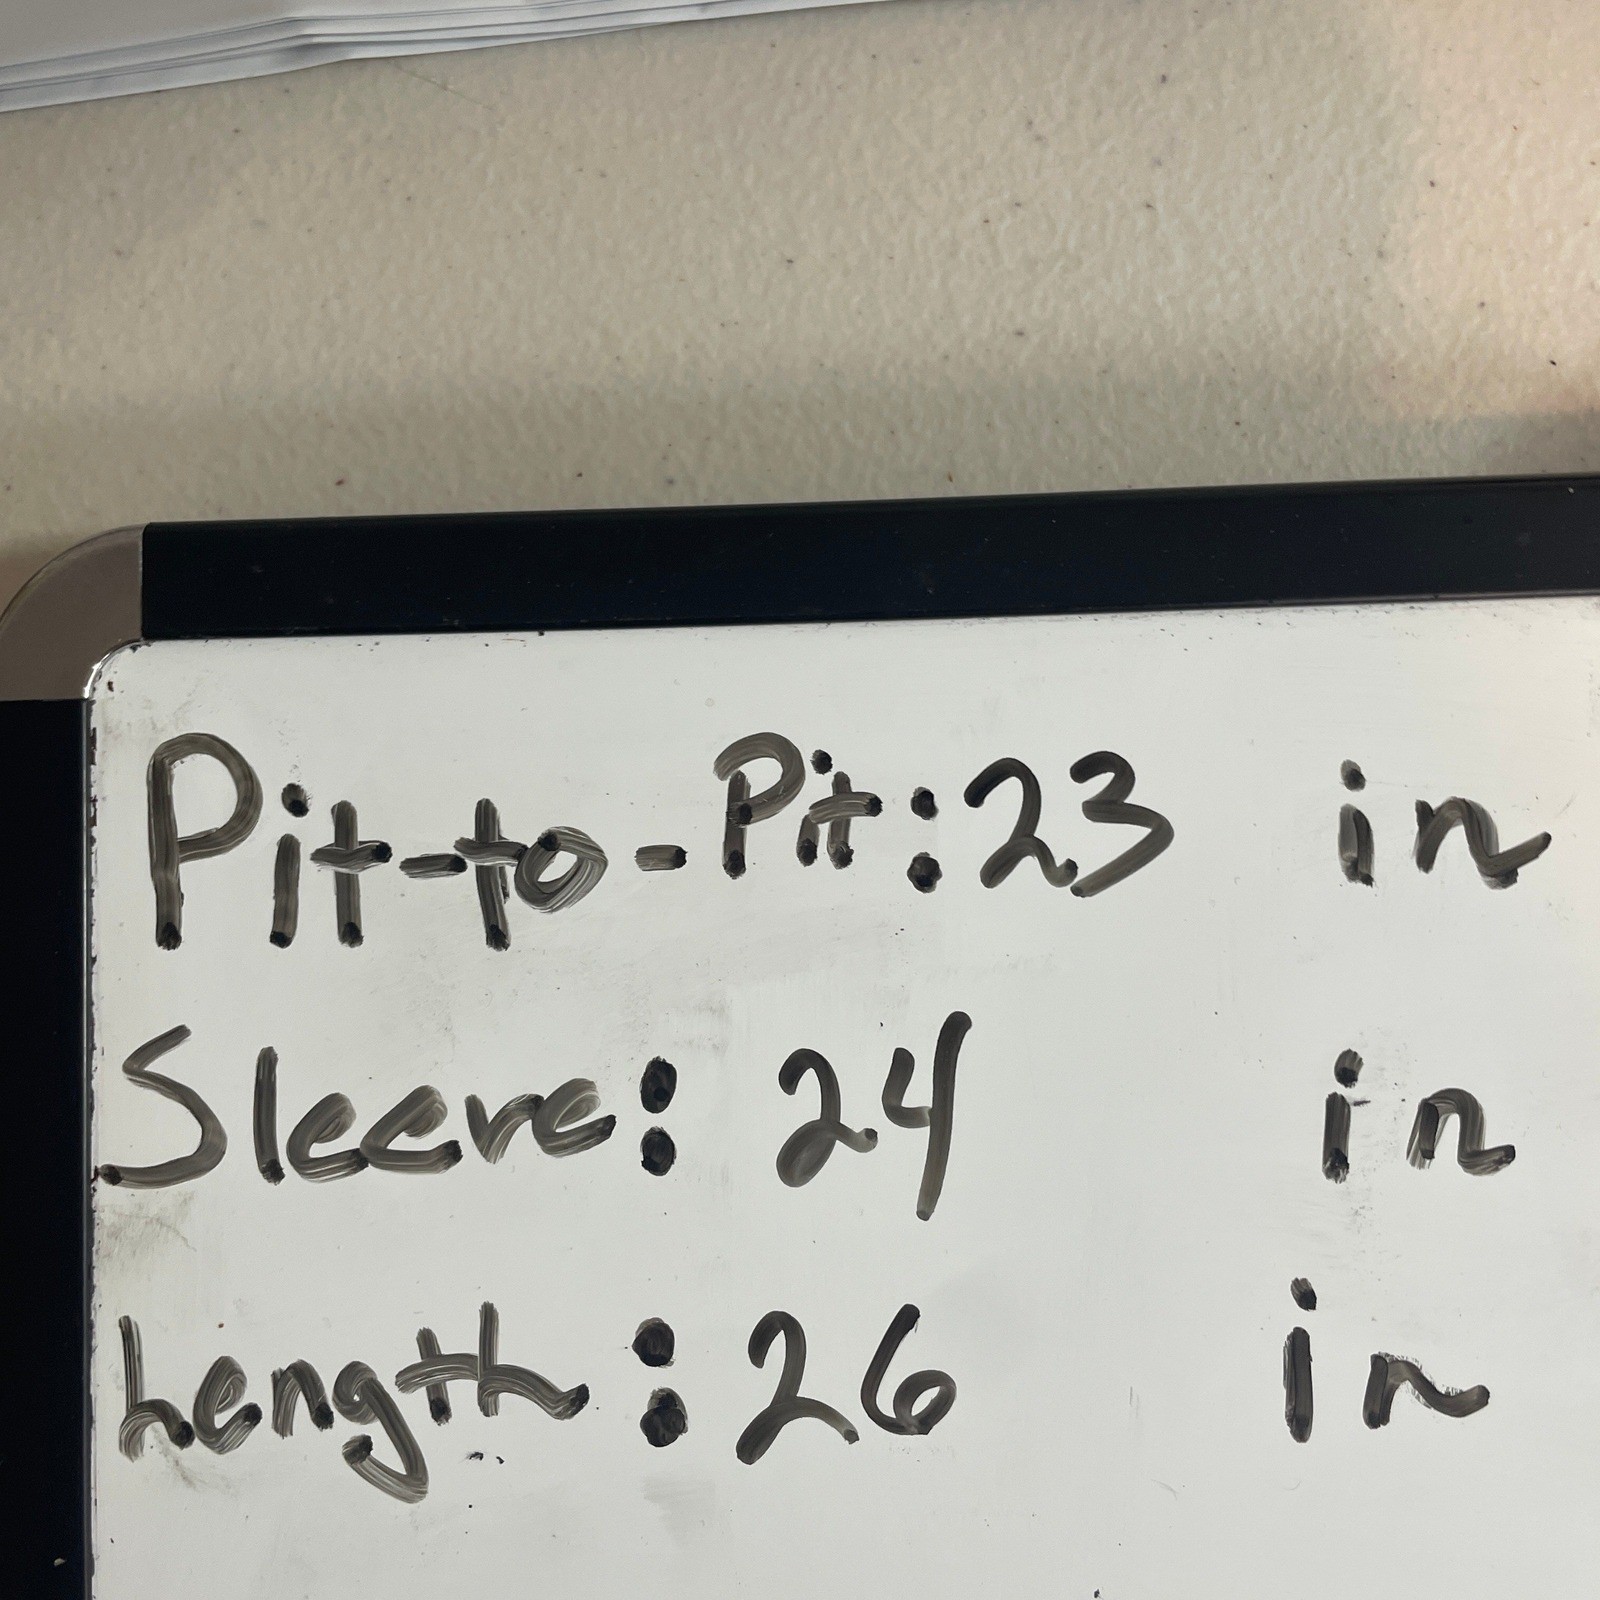 Pit-to-Pit: 23 in
Sleeve: 24 in
Length: 26 in